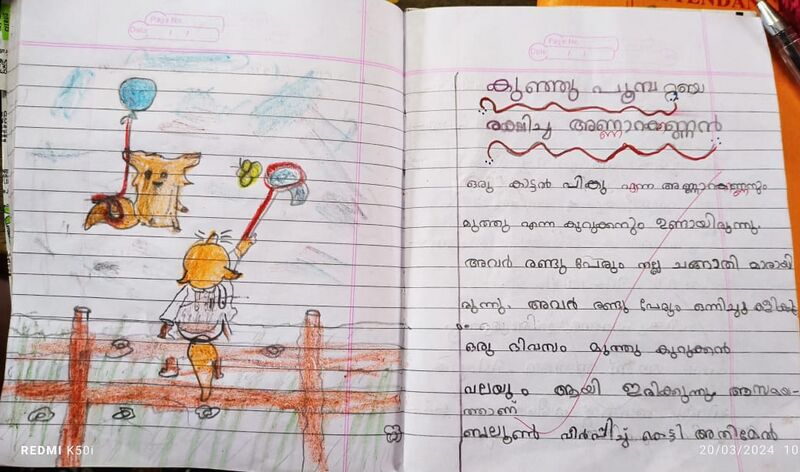 TENDAN
Page No.
Date
Page No.
Date
കുഞ്ഞു പൂമ്പാറ്റയെ
രക്ഷിച്ച അണ്ണാറക്കണ്ണൻ
ഒരു കാട്ടിൽ പിങ്കു എന്ന അണ്ണാറക്കണ്ണനും
മുത്തു എന്ന കുറുക്കനും ഉണായിരുന്നു.
അവർ രണ്ടു പേരും നല്ല ചങ്ങാതി മാരായി
രുന്നു. അവർ രണ്ടു പേരും ഒന്നിച്ചു
ഒരു ദിവസം മുത്തു കുറുക്കൻ
വലയും ആയി ഇരിക്കുന്നു. ആസമയ-
ത്താണ്
ബലൂൺ വീർപ്പിച്ച് കെട്ടി അതിമേൽ
REDMI K50i
20/03/2024 10